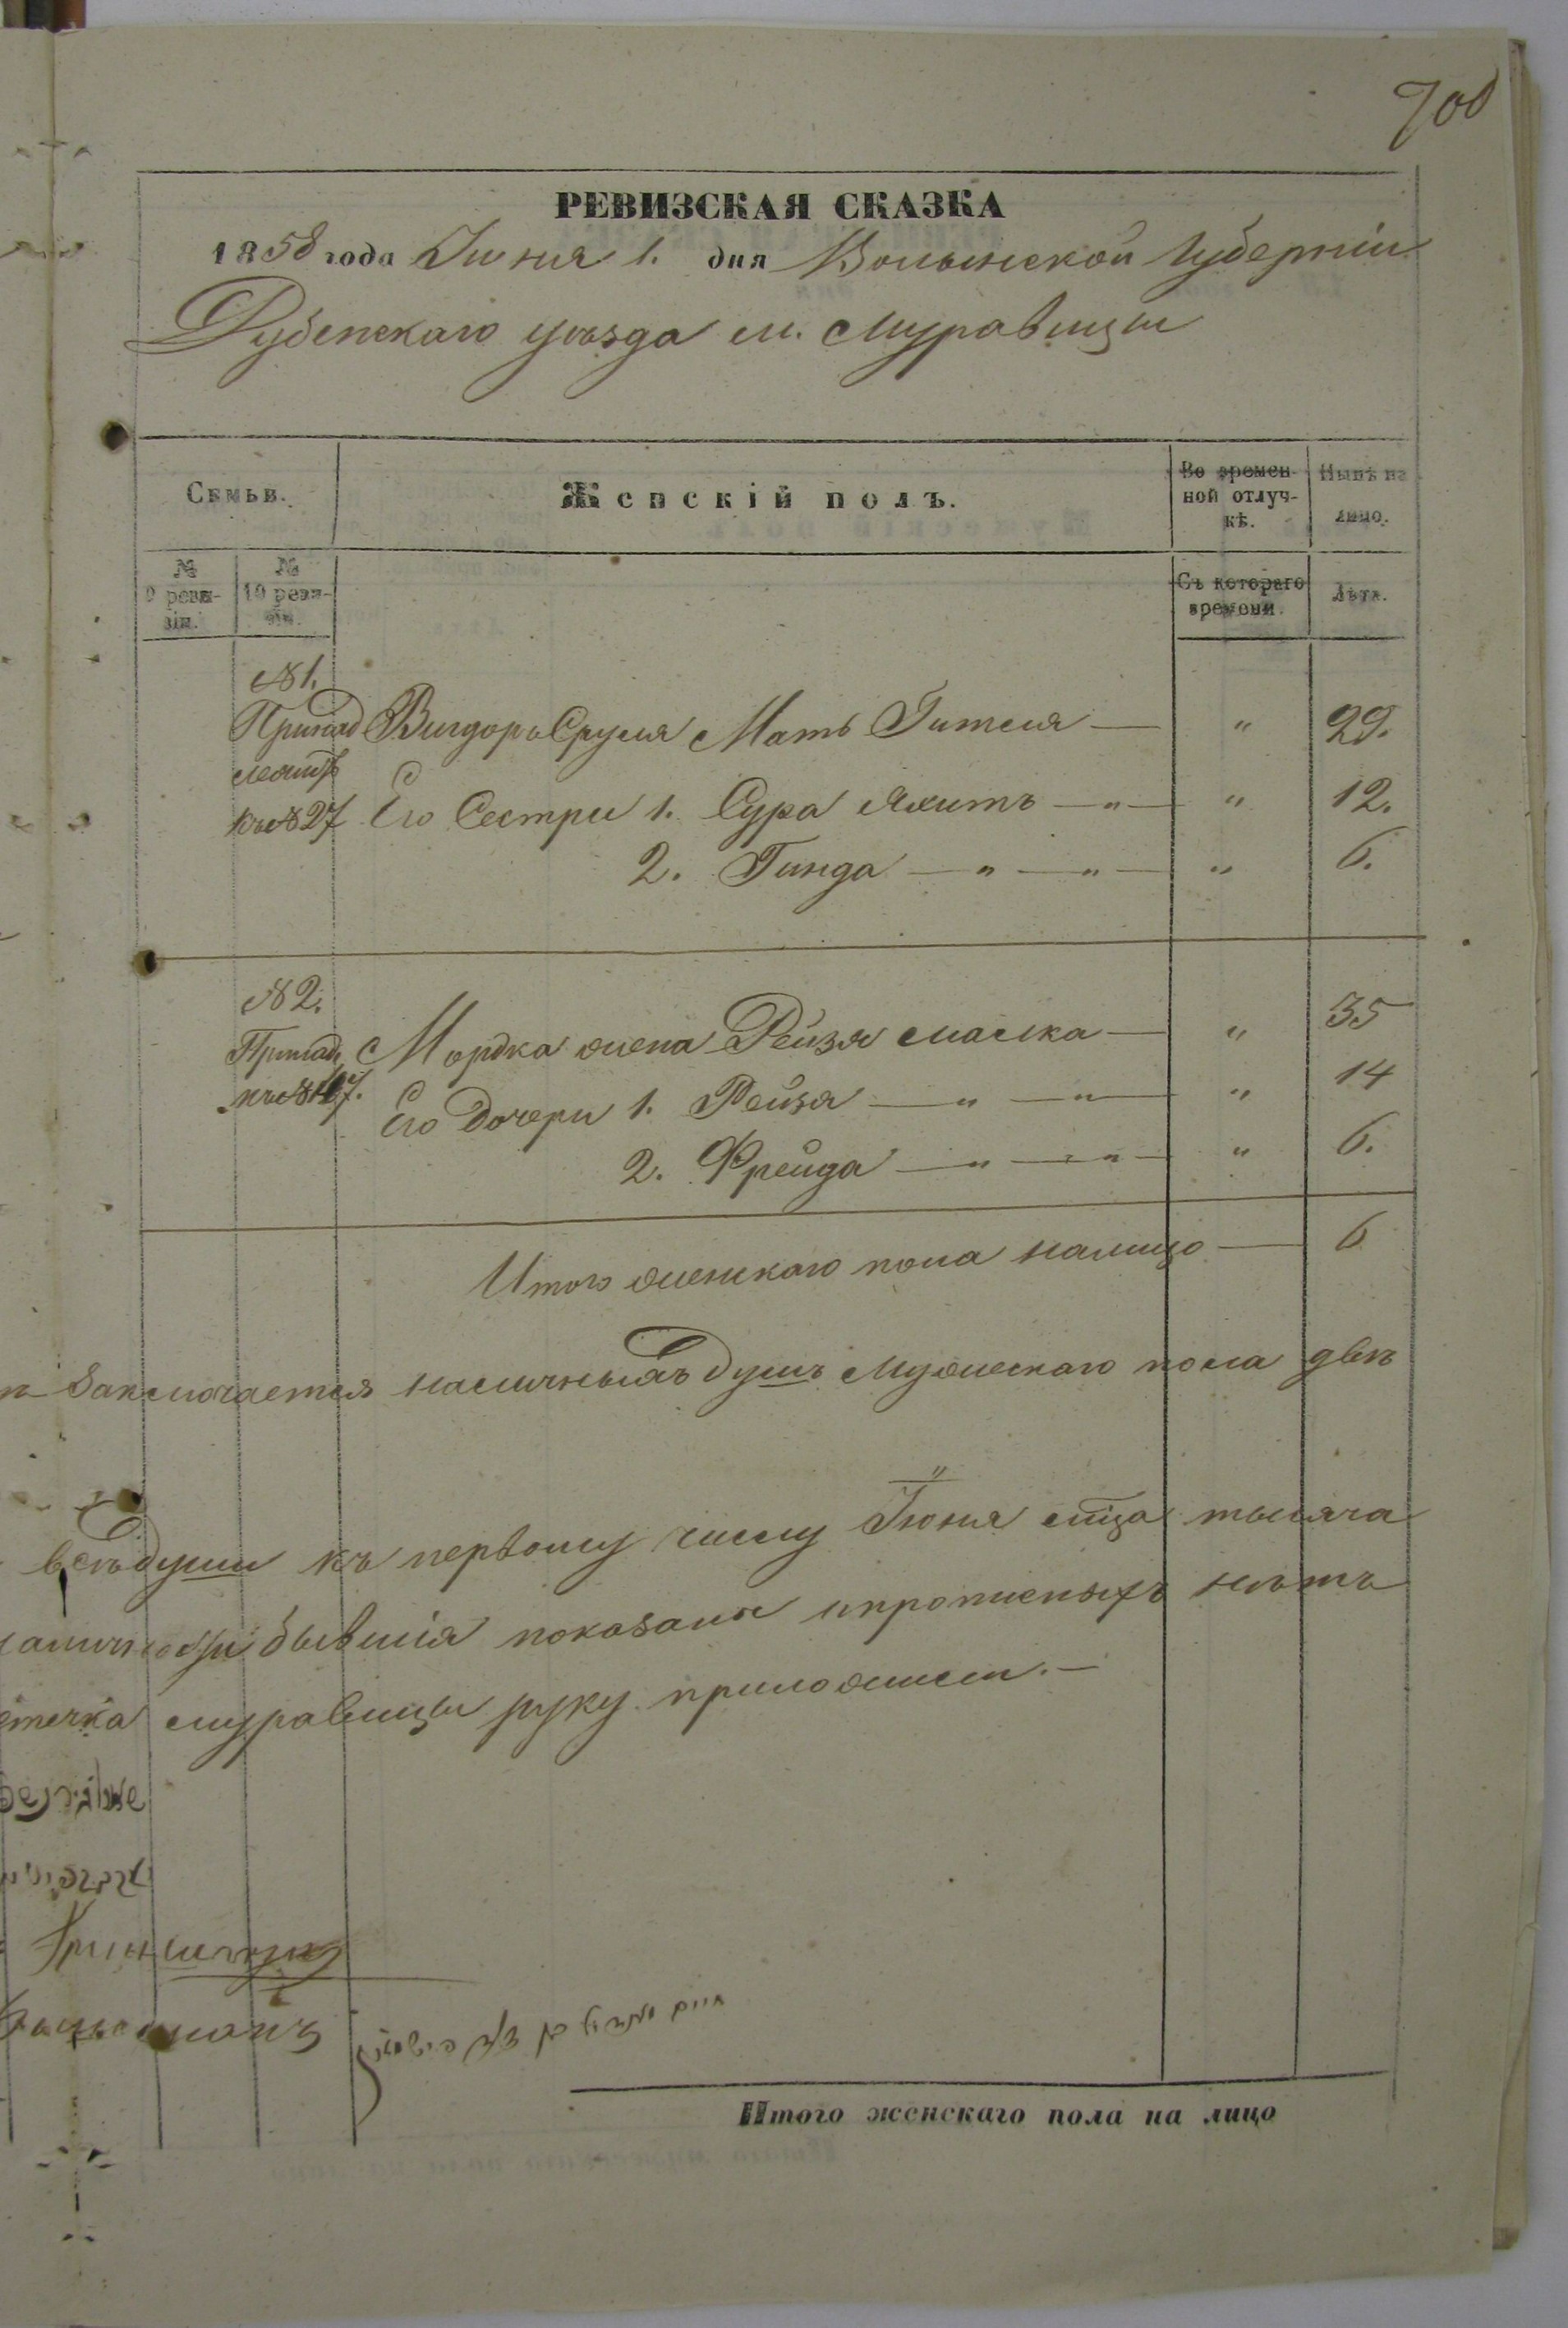 700
РЕВИЗСКАЯ СКАЗКА
1858 года Июня 1. дня Волынской Губерніи
Дубенскаго уѣзда м. Муравицы
Семьи. Женскій полъ. Во времен-ной отлуч-кѣ. Нынѣ на лицо.
№ 9 реви-зіи. № 10 реви-зіи. Съ котораго времени. Лѣта.
№ 1.
Принад Вигдоръ Сруля Мать Гителя — " 29.
лежит
къ № 27 Его Сестри 1. Сура Яхитъ — " — " 12.
2. Гинда — " — " — " 6.
№ 2.
Принад Мордка жена Рейзя малка — " 35
къ № 47. Его Дочери 1. Рейзя — " — " — " 14
2. Фрейда — " — " — " 6.
Итого женскаго пола налицо — 6
заключается наличныхъ душъ Мужескаго пола двѣ
"
всѣ души къ первому числу Іюня мца тысяча
бывшія показаны ипрописныхъ нѣтъ
муравицы руку приложили. —
חיים בן
Итого женскаго пола на лицо